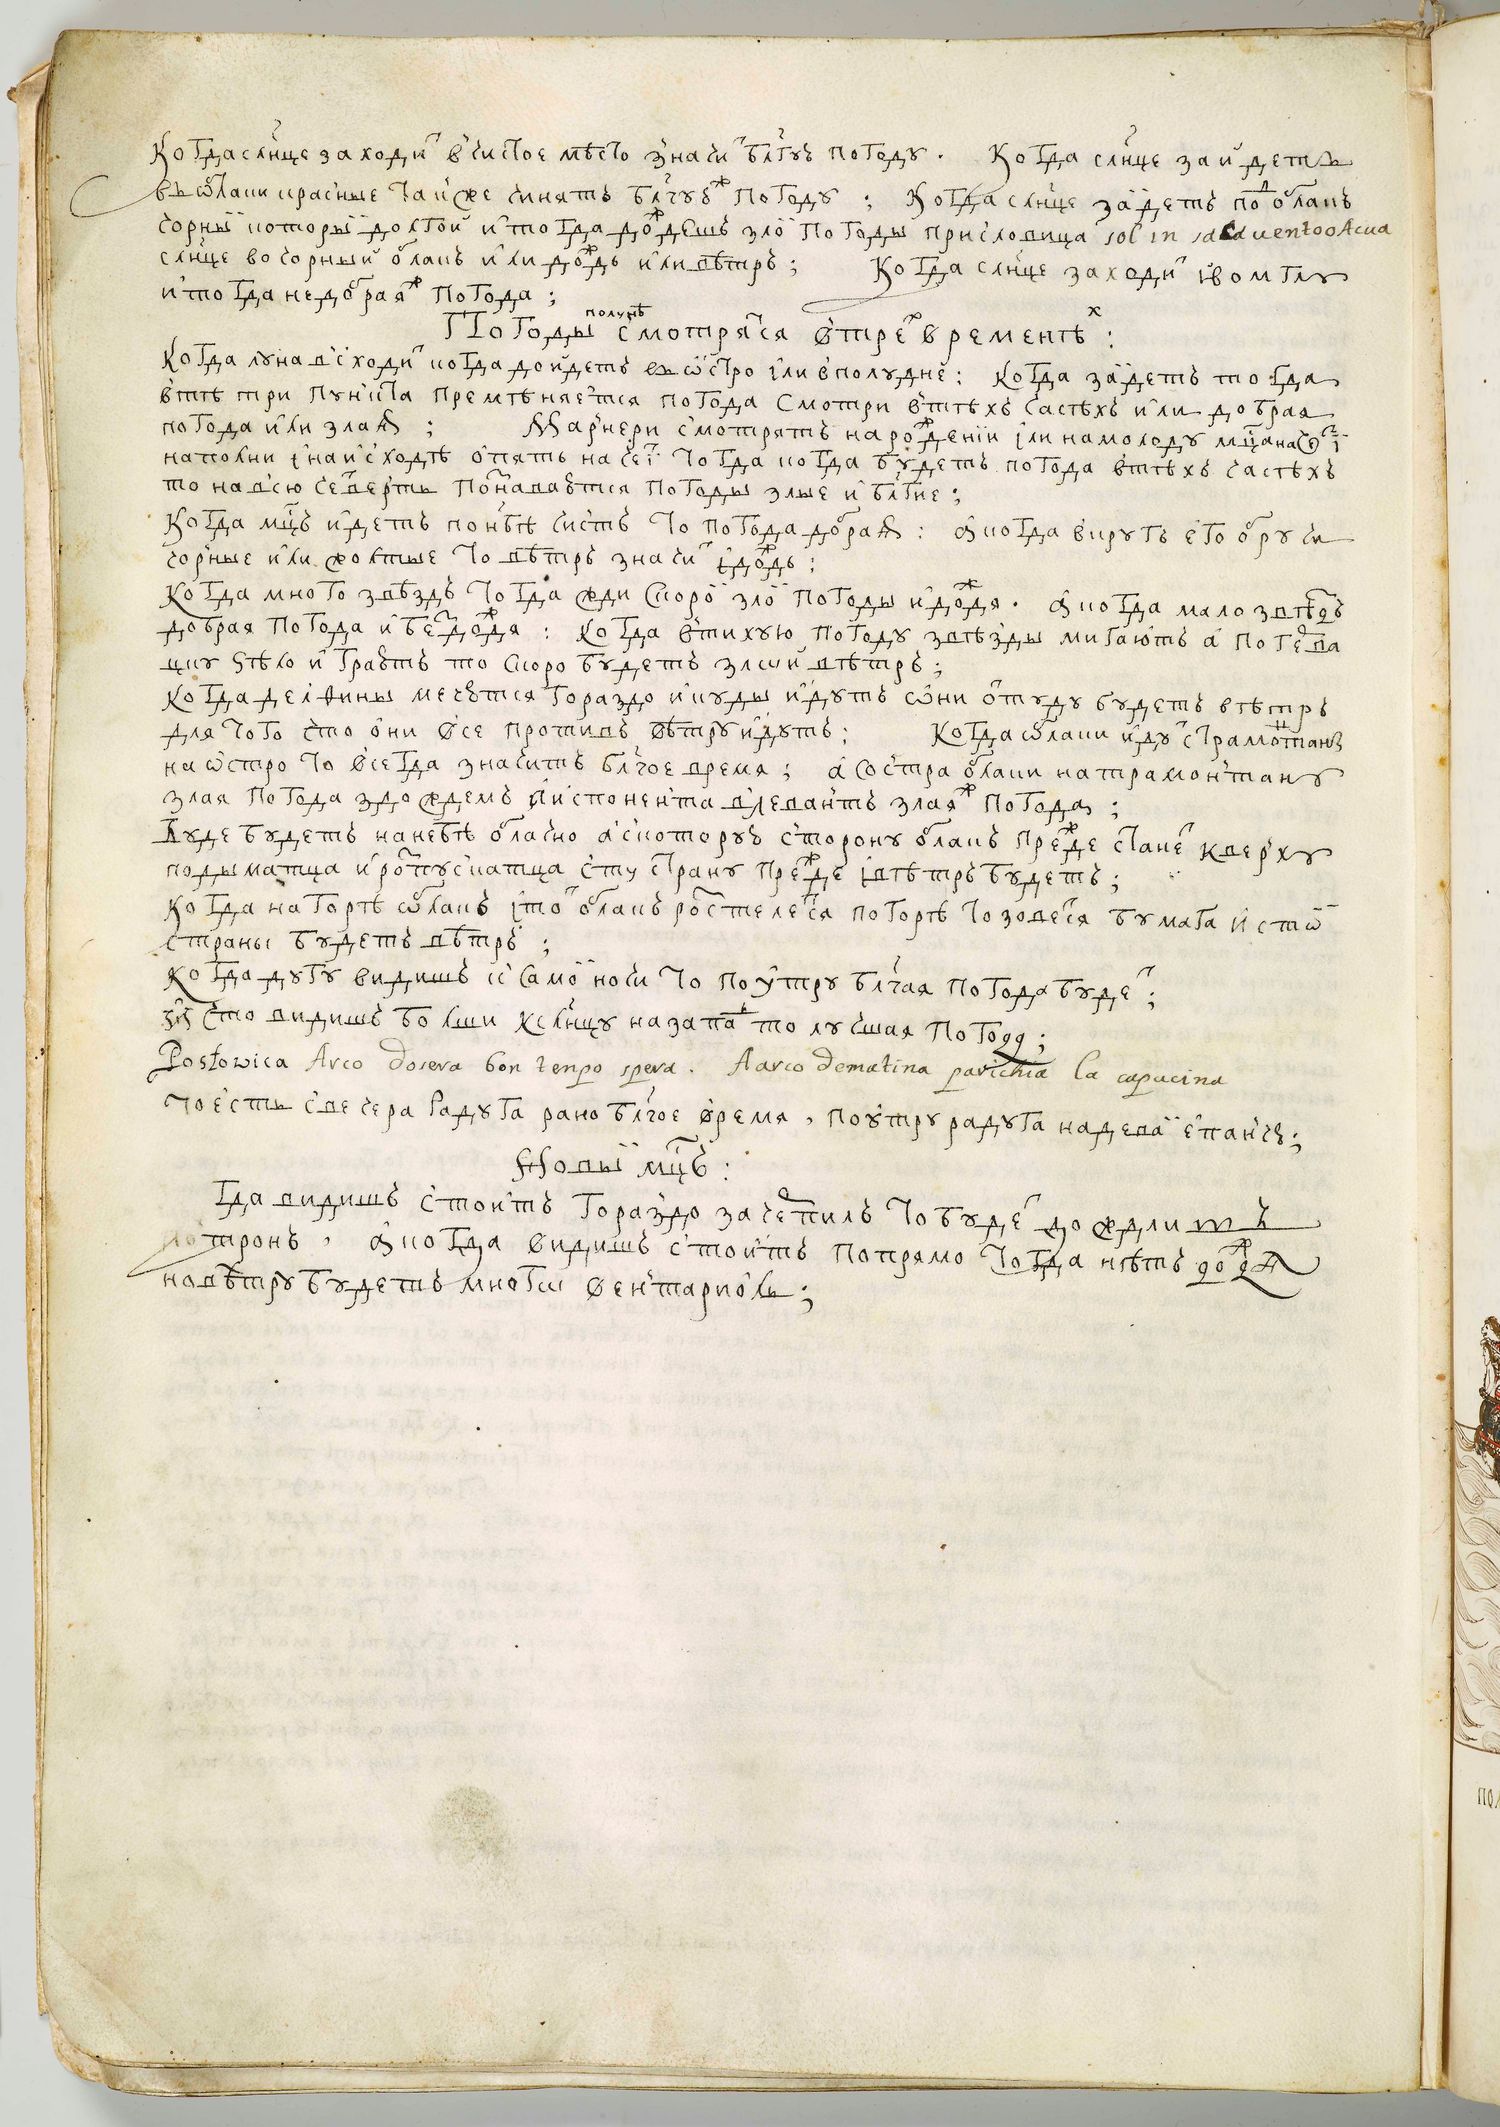 Когда слн҃це заходи в чистое мѣсто значи бл҃гую погоду. Когда слн҃це зайдетъ
въ ѡблаки красные такъже чинятъ бл҃гую погоду; Когда слн҃це заидетъ под облакъ
чорныи которыи долгои и тогда дождешь злои погоды присловица sol in saca uento o Acua
слн҃це во чорныи облакъ или дождь или вѣтръ; Когда слн҃це заходи во мглу
и тогда недобрая погода;
Погоды полунѣ смотряτся в трех временѣх:
Когда луна всходи когда доидетъ въ ѡстро или в полудне; Когда заидетъ тогда
в тѣ три пункта премѣняется погода смотри в тѣхъ частѣхъ или добрая
погода или злая; Марнери смотрятъ на рождении или на молоду мц҃а на
наполни и на исходѣ опять на чет тогда когда будетъ погода в тѣхъ частѣхъ
то на всю четверть познаваются погоды злые и бл҃гие;
Когда мц҃ъ идетъ по нб҃ѣ чистъ то погода добрая: а когда вкругъ его обручи
чорные или жолтые то вѣтръ значи и дождь;
Когда много звѣздъ тогда жди скорои злои погоды и дождя. а когда мало звѣздъ
добрая погода и без дождя: Когда в тихую погоду звѣзды мигаютъ а
ѕѣло играютъ то скоро будетъ злыи вѣтръ;
Когда делѳины мечются гораздо и куды идутъ ѡни оттуду будетъ вѣтръ
для того что они все противъ вѣтру идутъ; Когда ѡблаки иду с трамонтаны
на ѡстро то всегда значитъ бл҃гое время; а со остра облаки на трамонтану
злая погода з дождемъ а ис понента в левантъ злая погода;
Буде будетъ на небѣ облачно а с которую сторону облакъ прежде стане кверху
подыматца и роспускатца с ту страну прежде и вѣтръ будетъ;
Когда на горѣ ѡблакъ и тот облакъ ростелется по горѣ то зовется бумага и с тои
страны будетъ вѣтръ;
Когда дугу видишь к самои ночи то поутру бл҃гая погода буде;
что видишь болши к слн҃цу на запад то лучшая погода;
Postowica Arco dosera bon tenpo spera. Aarco dematina parichia la capucina
то есть с вечера радуга рано бл҃гое время, поутру радуга надеваи епанчю;
Новыи мц҃ъ:
гда видишь стоитъ гораздо зачепилъ то буде дождли
патронъ, а когда видишь стоитъ попрямо тогда нѣтъ дождя
но вѣтру будетъ многи вентариоль;